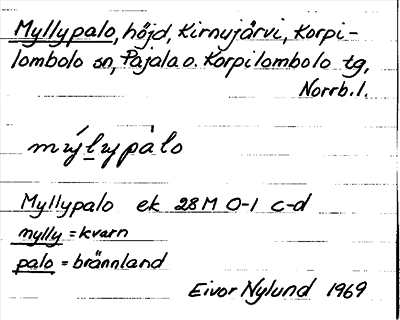 Myllypalo, höjd, Kirnujärvi, Korpi-
lombolo sn, Pajala o. Korpilombolo tg,
Norrb. l.
mýl̲ypàlo
Myllypalo ek 28M 0-1 c-d
mylly = kvarn
palo = brännland
Eivor Nylund 1969